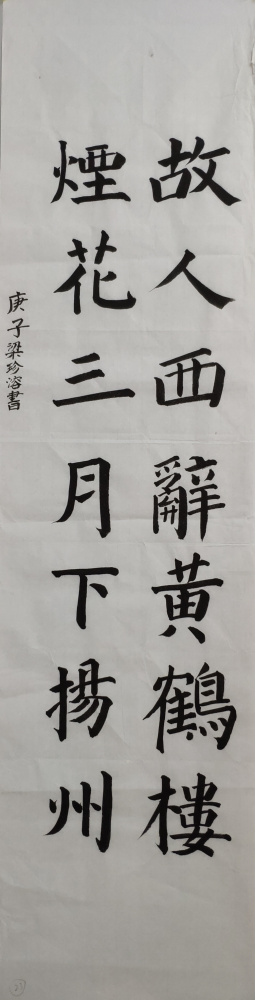 故人西辭黃鶴樓
煙花三月下揚州
庚子梁珍溶書